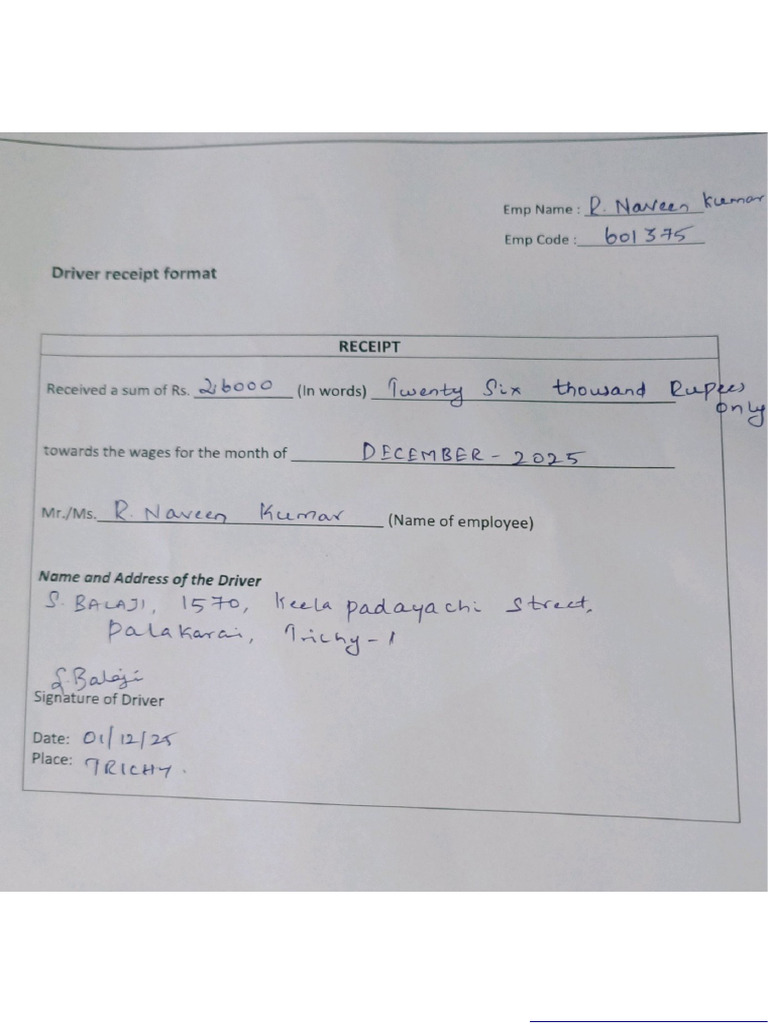 Emp Name : R. Naveen Kumar
Emp Code : 601375
Driver receipt format
RECEIPT
Received a sum of Rs. 26000 (In words) Twenty Six thousand Rupees
only
towards the wages for the month of DECEMBER - 2025
Mr./Ms. R. Naveen Kumar (Name of employee)
Name and Address of the Driver
S. BALAJI, 1570, Keela padayachi street,
palakarai, Trichy-1
S. Balaji
Signature of Driver
Date: 01/12/25
Place: TRICHY.